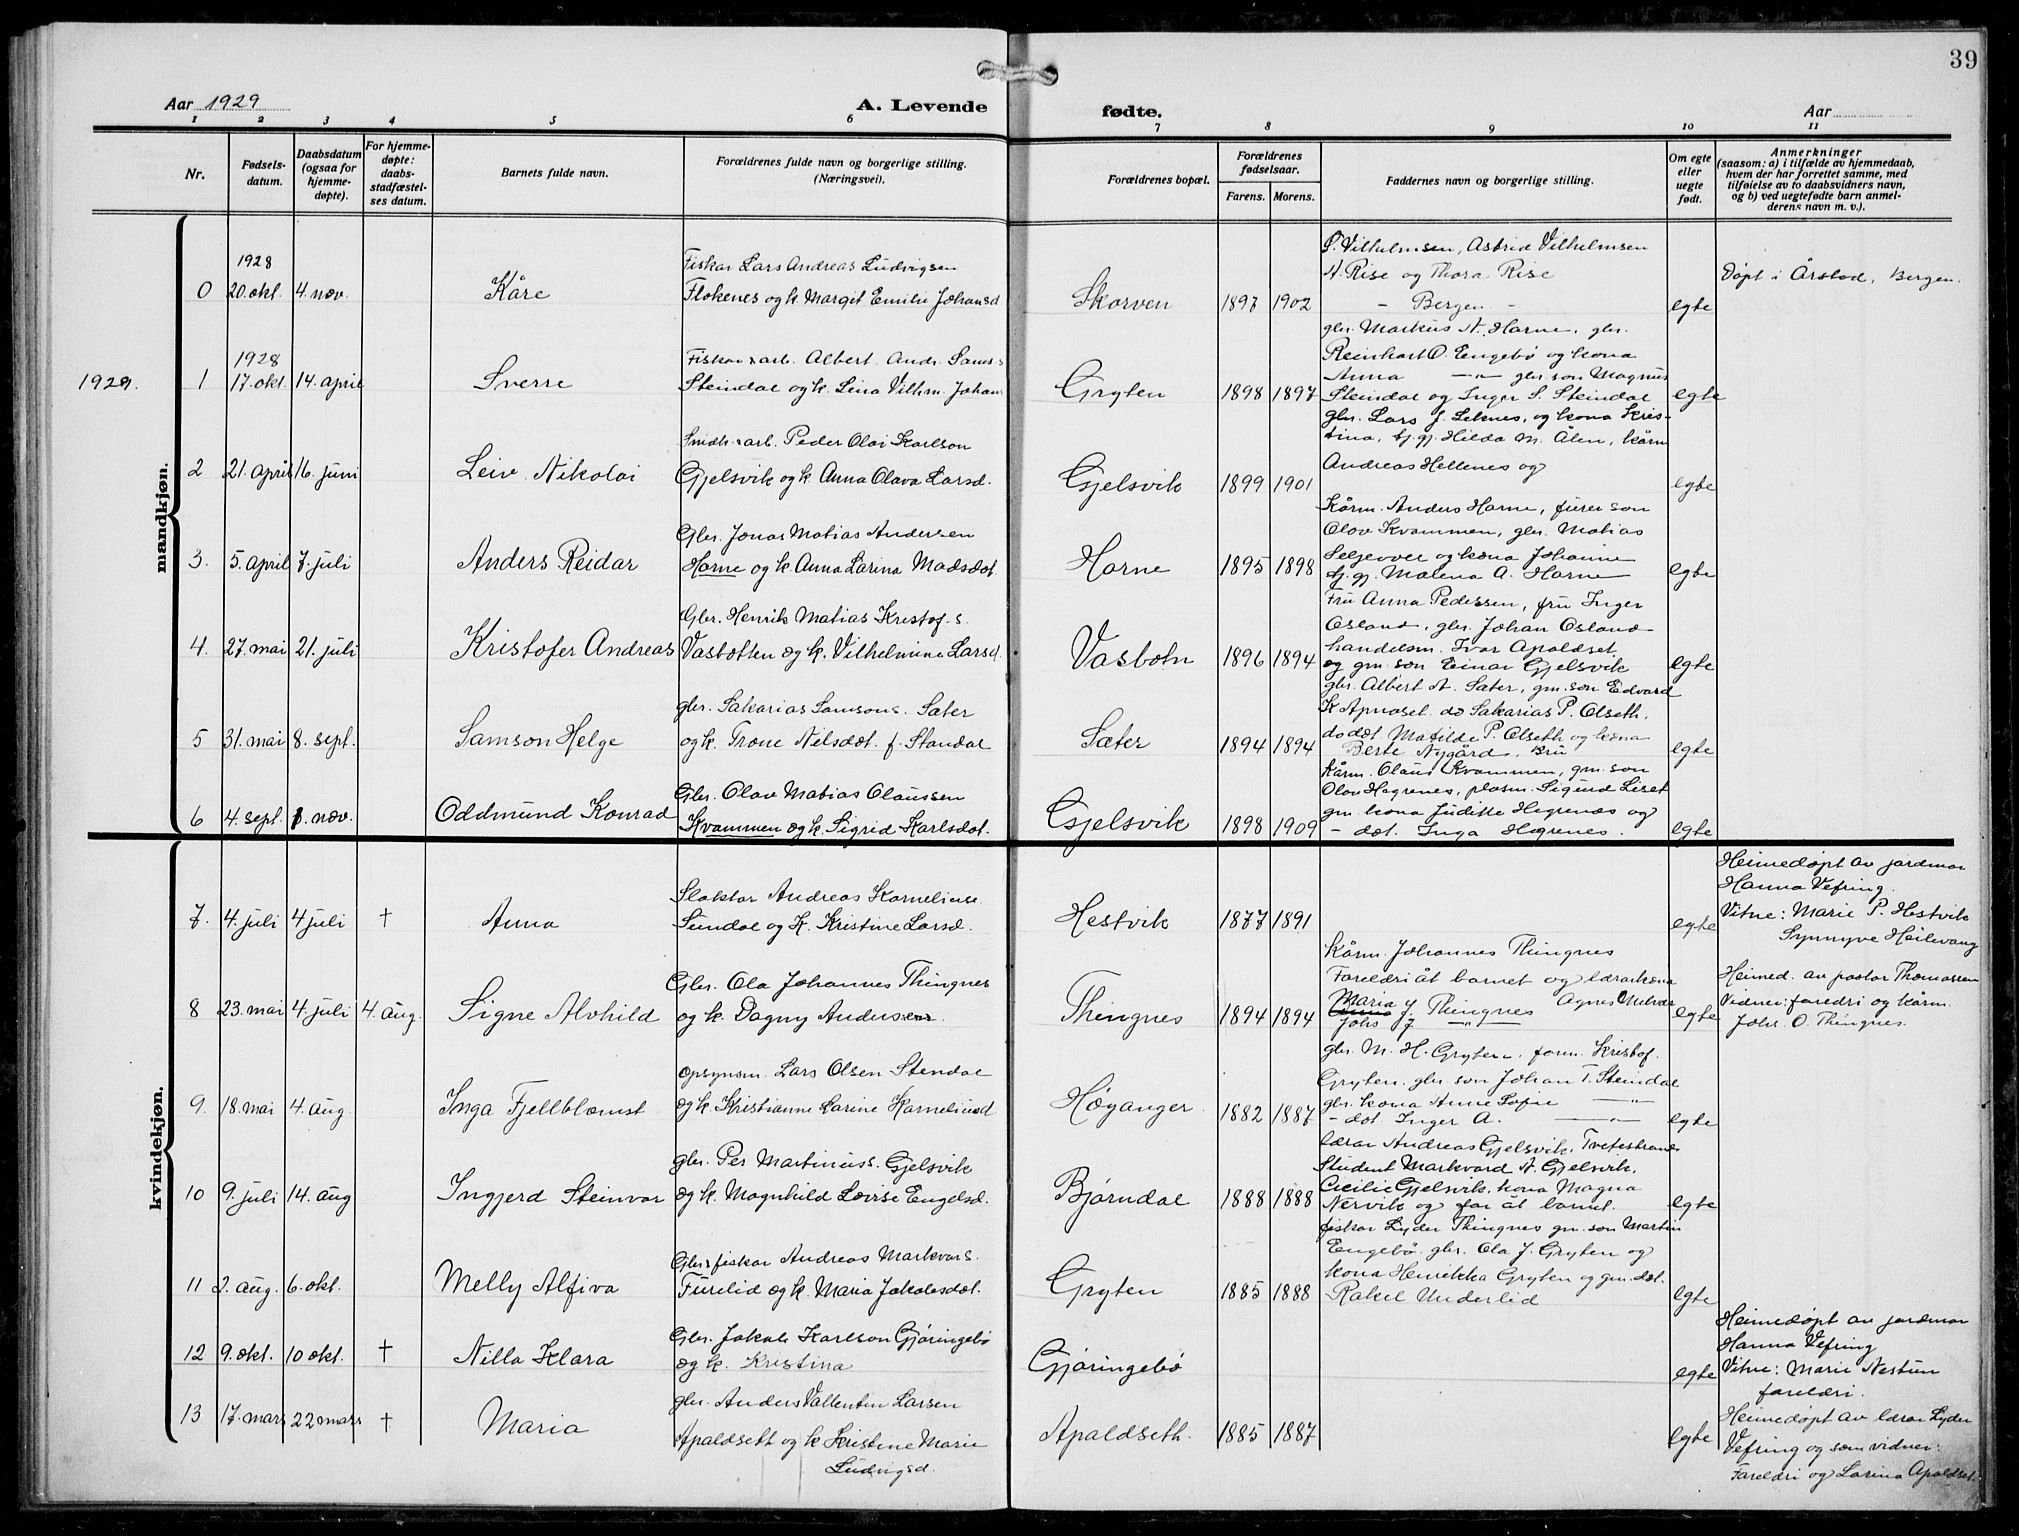 39
Aar 1929
A. Levende
fødte.
Aar
1 2 3 4 5 6 7 8 9 10 11
Nr.
Fødsels-
datum.
Daabsdatum
(ogsaa for
hjemme-
døpte).
For hjemme-
døpte:
daabs-
stadfæstel-
ses datum.
Barnets fulde navn.
Forældrenes fulde navn og borgerlige stilling.
(Næringsvei).
Forældrenes bopæl.
Forældrenes
fødselsaar.
Farens. Morens.
Faddernes navn og borgerlige stilling.
Om egte
eller
uegte
født.
Anmerkninger
(saasom: a) i tilfælde av hjemmedaab,
hvem der har forrettet samme, med
tilføielse av to daabsvidners navn,
og b) ved uegtefødte barn anmel-
derens navn m. v.).
mandkjøn.
1928
0 20. okt. 4. nov.
Kåre
Fiskar Lars Andreas Ludvigsen
Flokenes og k. Margit Emilie Johansd
Skorven
1897 1902
P. Vilhelmsen, Astrid Vilhelmsen
A. Rise og Thora Rise
- Bergen -
egte
Døpt i Årstad, Bergen.
1929.
1928
1 17. okt. 14. april
Sverre
Fiskar & arb. Albert Andr. Sams.s
Steindal og k. Lina Vilhm. Johan
Gryten
1898 1897
gbr. Markus A. Horne, gbr.
Reinhart O. Engebø og kona
Anna —"— gbr. son Magnus
Steindal og Inger S. Steindal
egte
2 21. april 16. juni
Leiv Nikolai
Smidh. arb. Peder Olai Karlson
Gjelsvik og k. Anna Olava Larsd.
Gjelsvik
1899 1901
gbr. Lars J. Leknes, og kona Kris-
tina, tj. gj. Hilda M. Ålen, kårm
Andreas Hellenes og
egte
3. 5. april 7. juli
Anders Reidar
Gbr. Jonas Matias Andersen
Horne og k. Anna Larina Madsdot
Horne
1895 1898
Kårm. Anders Horne, furer son
Olav Kvammen, gbr. Matias
Selgevver og kona Johanne
tj. gj. Malena A. Horne
egte
4. 27. mai 21. juli
Kristofer Andreas
Gbr. Henrik Matias Kristof. s.
Vasbotten og k. Vilhelmine Larsd.
Vasbotn
1896 1894
Fru Anna Pedersen, fru Inger
Osland, gbr. Johan Osland
handelsm. Ivar Apaldset
og gm. son Einar Gjelsvik
egte
5 31. mai 8. sept.
Samson Helge
gbr. Sakarias Samsons. Sæter
og k. Trone Nilsdot. f. Standal
Sæter
1894 1894
gbr. Albert A. Sæter, gm. son Edvard
do Sakarias P. Olseth.
do dot. Matilde P. Olseth og kona
Berte Nygård, Bru
egte
6 4. sept. 1. nov.
Oddmund Konrad
Gbr. Olav Matias Olaussen
Kvammen og k. Sigrid Karlsdot.
Gjelsvik
1898 1909
Kårm. Olaus Kvammen, gm. son
Olav Hegrenes, plasm. Sigurd Liset
gm. kona Juditte Hegrenes og
- dot. Inga Hegrenes.
egte
kvindekjøn.
7. 4. juli 4 juli †
Anna
Slaktar Andreas Korneliuss.
Sundal og K. Kristine Larsd.
Hestvik
1877 1891
egte
Heimedøpt av jordmor
Hanna Vefring.
Vitne: Marie P. Hestvik
Synnyve Heilevang
8 23. mai 4. juli 4. aug.
Signe Alvhild
Gbr. Ola Johannes Thingnes
og k. Dagny Andersen
Thingnes
1894 1894
Kårm. Johannes Thingnes
Foreldri åt barnet og lærarkona
Maria J. Thingnes Agnes
Johs J —"—
egte
Heimed. av pastor Thomassen
Vidner: foreldri og kårm.
Johs. O. Thingnes.
9. 18. mai 4. aug.
Inga Fjellblomst
opsynsm. Lars Olsen Stendal
og k. Kristianne Larine Kornelius d
Høyanger
1882 1887
gbr. M. H. Gryten. form. Kristof.
Gryten. gbr son Johan T. Steindal
gbr. kona Anne Sofie —"—
- dot. Inger A. —"—
egte
10 9. juli 14. aug
Ingjerd Steinvor
gbr. Per Martinuss. Gjelsvik
og k. Magnhild Lovise Engelsd.
Bjørndal
1888 1888
lærar Andreas Gjelsvik, Tvetestrand
Student Markvard A. Gjelsvik,
Cicilie Gjelsvik, kona Magna
Nervik og far åt barnet.
egte
11 2. aug. 6. okt.
Melly Alfiva
Gbr & fiskar Andreas Markvars.
Furelid og k. Maria Jakobsdot.
Gryten
1885 1888
fiskar Lyder Thingnes gm. son Martin
Engebø. gbr. Ola J. Gryten og
kona Henrikka Gryten og gm. dot.
Rakel Underlid
egte
12 9. okt. 10 okt. †
Nilla Klara
Gbr. Jakob Karlson Gjøringebø
og k. Kristina
Gjøringebø
egte
Heimedøpt av jordmor
Hanna Vefring
Vitne: Marie Nestun
foreldri.
13 17. mars 22 mars †
Maria
gbr. Anders Vallentin Larsen
Apaldseth og k Kristine Marie
Ludvigsd.
Apaldseth.
1885 1887
egte
Heimedøpt av lærar Lyder
Vefring og som vidner:
Foreldri og Larina Apaldset.